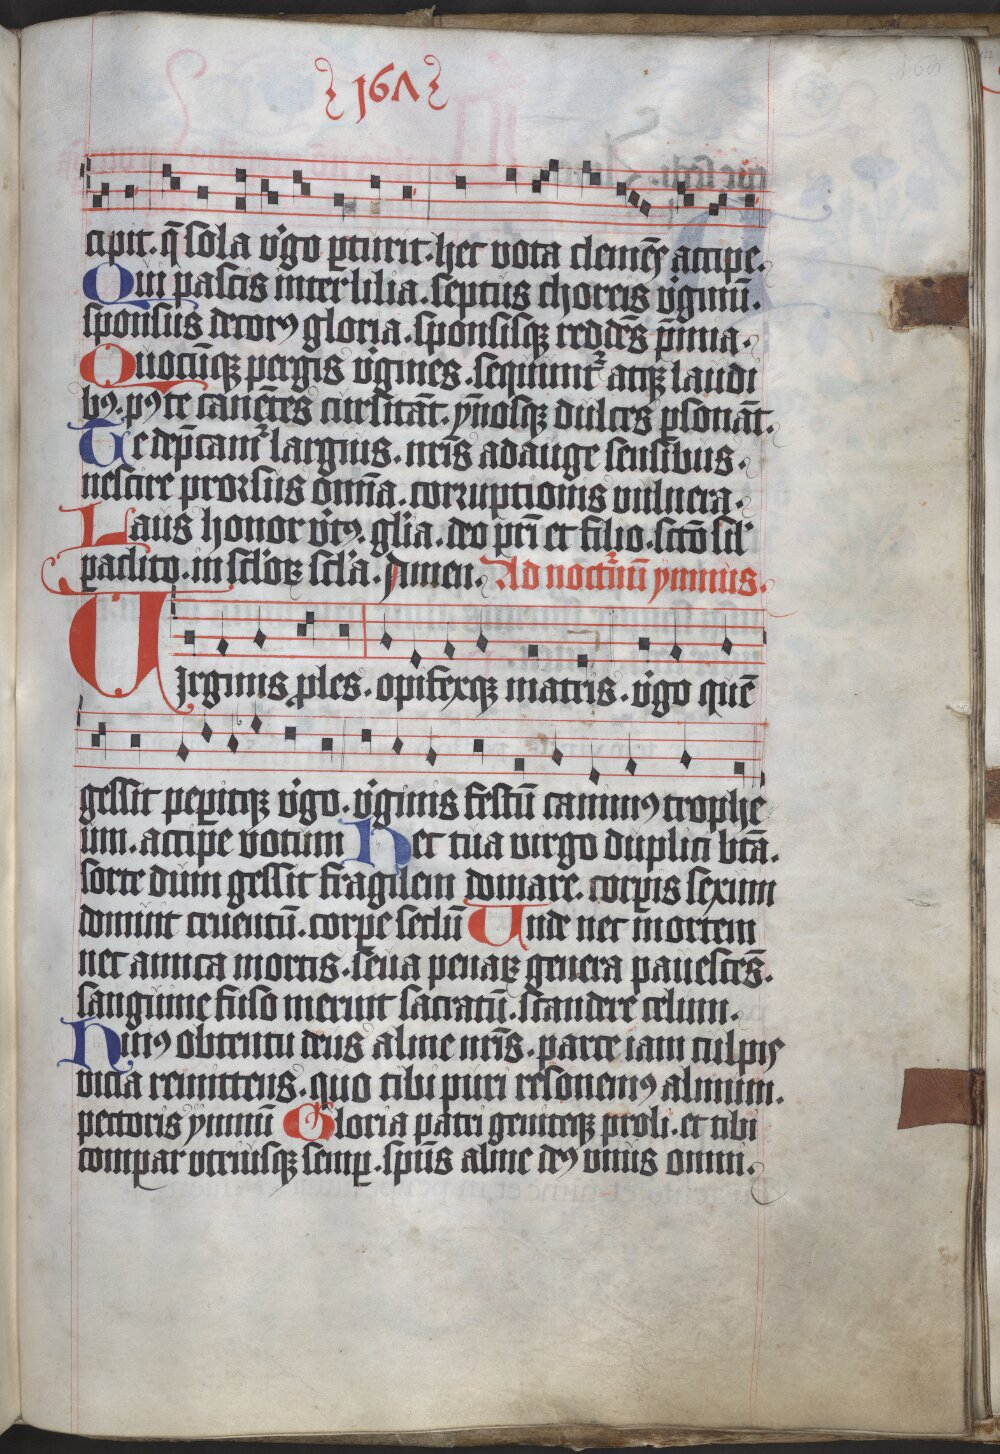 167
cipit. q̄ sola v̓go ꝑturit. hec vota clemēs accipe.
Qui pascis inter lilia. septus choreis v̓ginū.
sponsus decorꝰ gloria. sponsisqꝫ reddēs p̄mia.
Quocūqꝫ pergis v̓gines. sequunt᷑ atqꝫ laudi
bꝰ. pꝰ te canētes cursitāt. ẏnosqꝫ dulces ꝑsonāt.
Te dep̄cam᷑ largius. nr̄is adauge sensibus.
nescire prorsus om̄ia. corruptionis vulnera.
Laus honor v̓tꝰ gl̓ia. deo pr̄i et filio. sc̄o sil̓
paclito. in scl̓oꝝ scl̓a. Amen. Ad noct᷑nū ymnus.
Uirginis ꝓles. opifexqꝫ matris. v̓go quē
gessit peperitqꝫ v̓go. v̓ginis festū canimꝰ trophe
um. accipe votum Hec tua virgo duplici bt̄a.
sorte dum gessit fragilem domare. corꝑis sexum
domuit cruentū. corꝑe seclū Unde nec mortem
nec amica mortis. seua penaꝝ genera pauescēs.
sanguine fuso meruit sacratū. scandere celum.
Huiꝰ obtentu deus alme nr̄is. parce iam culpis
vicia remittens. quo tibi puri resonemꝰ almum.
pectoris ymnū Gloria patri geniteqꝫ proli. et tibi
compar vtriusqꝫ semꝑ. sp̄us alme deꝰ vnus omni.